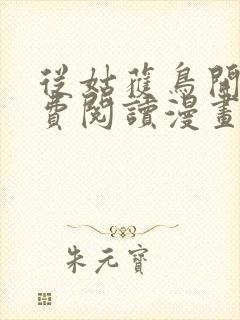 從姑獲鳥開
費閱讀漫畫
朱元寶